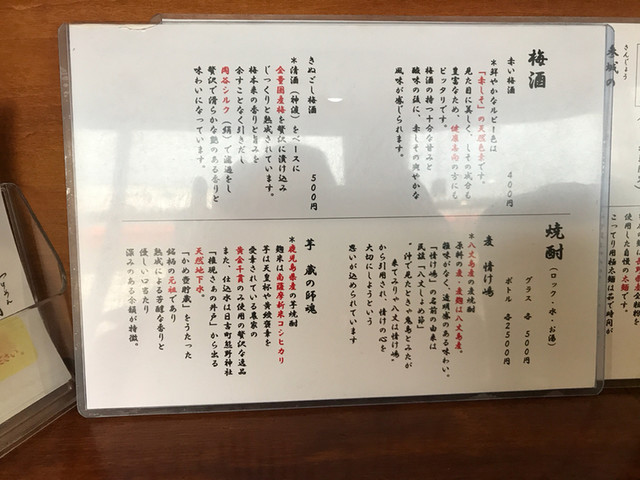 梅酒
赤い梅酒
400円
*鮮やかなルビー色は
「赤しそ」の天然色素です。
見た目に美しく、しその成分も
豊富なため、健康志向の方にも
ピッタリです。
梅酒の持つ十分な甘みと
酸味の後に、赤しその爽やかな
風味が感じられます。
きぬごし梅酒
500円
*清酒(神渡)をベースに
全量国産梅を贅沢に漬け込み
じっくりと熟成されています。
梅本来の香りと旨みを
余すことなく引きだし
岡谷シルク(絹)で濾過をし
贅沢で滑らかな艶のある香りと
味わいになっています。
焼酎(ロック・水・お湯)
グラス 各500円
ボトル 各2500円
麦 情け嶋
*八丈島産の麦焼酎
原料の麦・麦麹は八丈島産。
雑味がなく、透明感のある味わい。
「情け嶋」の名前の由来は
民謡「八丈しょめ節」
〝沖で見たときゃ鬼島とみたが
来てみりゃ八丈は情け嶋〟
から引用され、情けの心を
大切にしようという
思いが込められています
芋 蔵の師魂
*鹿児島県産の芋焼酎
麹米は南薩摩新米コシヒカリ
芋は天皇杯や黄綬褒章を
受章されている農家の
黄金千貫のみ使用の贅沢な逸品
また、仕込水は日吉町熊野神社
「権現さあの井戸」から出る
天然地下水。
「かめ壺貯蔵」をうたった
銘柄の元祖であり
熟成による芳醇な香りと
優しい口当たり
深みのある余韻が特徴。
さんじょう
使用した自慢の太麺。
こってり用極太麺は茹で時間が